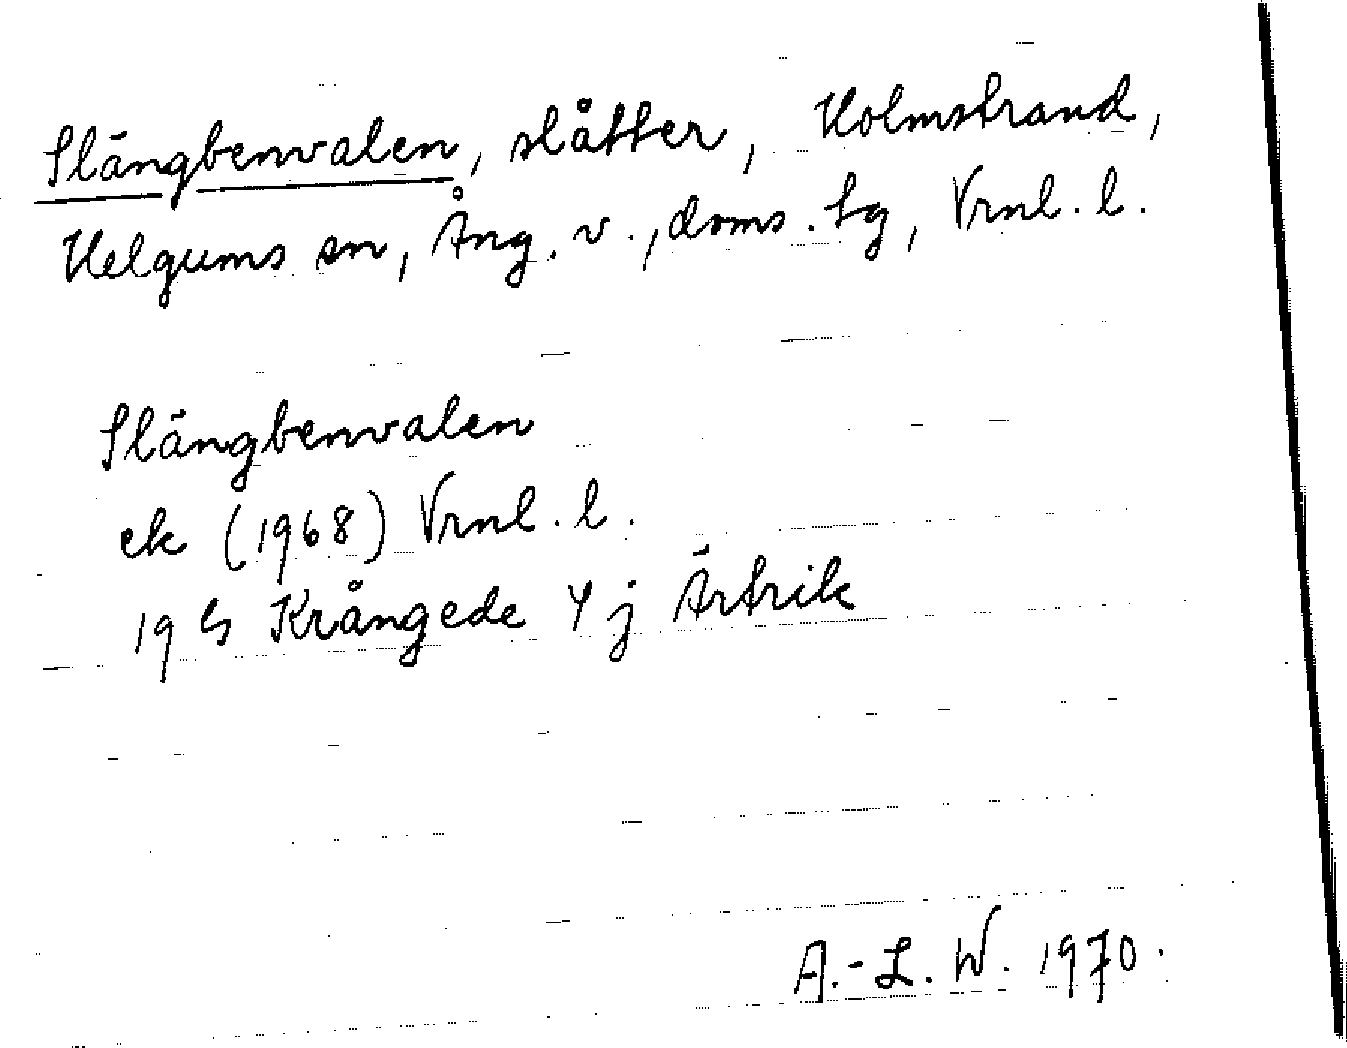 Slängbenvalen, slåtter, Holmstrand,
Helgums sn, Ång. v., doms. lg, Vrnl. l.
Slängbenvalen
ek (1968) Vrnl. l.
19 G Krångede 4 j Ärtrik
A.-L. W. 1970.